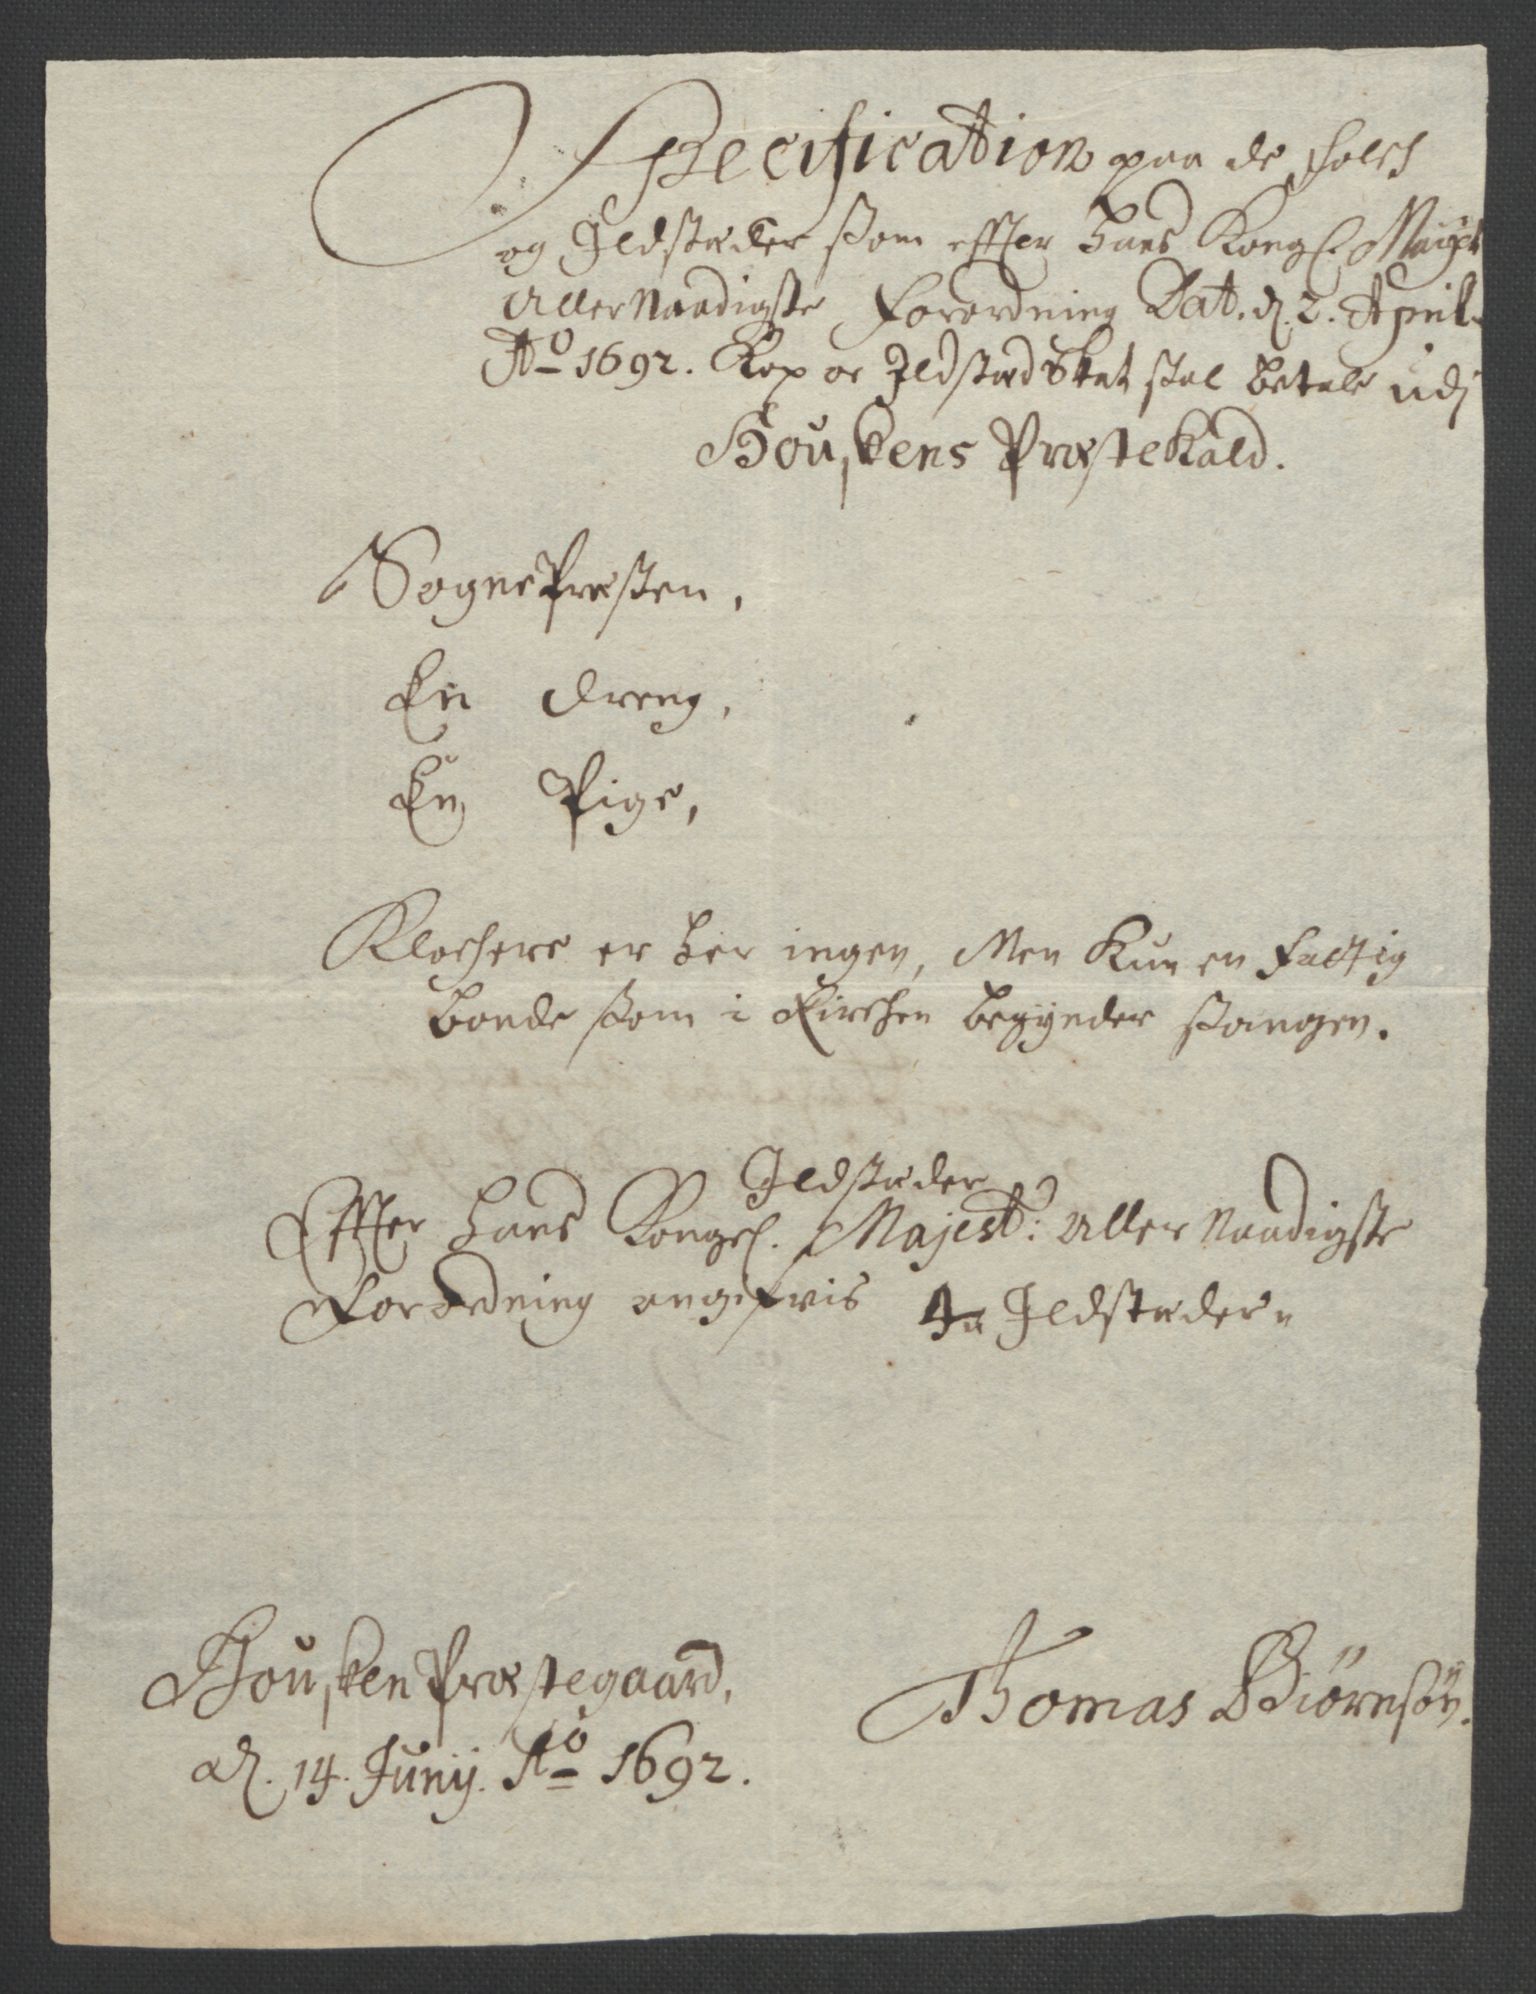 Specification paa de Folch
og Ildstæder som effter hans Kongl. Mayts
Aller Naadigste Forordning Dat. d. 2. April
Ao 1692. Kop oc Ildstæd Skat skal betale udj
Houskens Præstekald.
Sogne Præsten,
En dreng,
En Pige,
Klochere er her ingen, Men kun en fattig
bonde som i Kirchen begynder sangen.
Ildstæder
Effter hans Kongel. Majest: Aller Naadigste
Forordning angifvis Ildstæder
Housken Præstegaard,
d. 14. Junij. Ao 1692.
Thomas Biørnsøn.